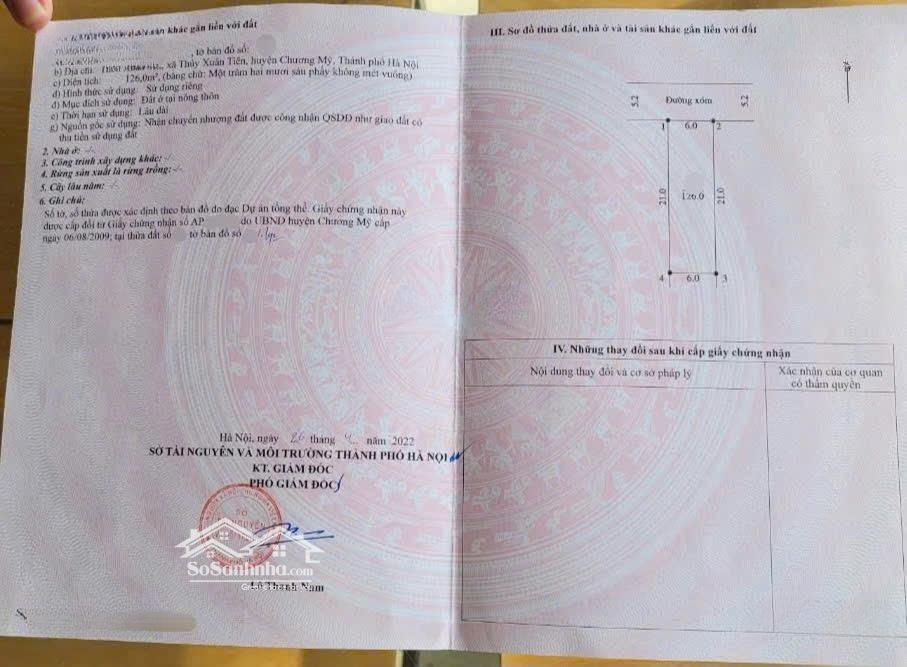 sản khác gắn liền với đất
, tờ bản đồ số:
b) Địa chỉ: , xã Thủy Xuân Tiên, huyện Chương Mỹ, Thành phố Hà Nội
c) Diện tích: 126,0m², (bằng chữ: Một trăm hai mươi sáu phẩy không mét vuông)
d) Hình thức sử dụng: Sử dụng riêng
đ) Mục đích sử dụng: Đất ở tại nông thôn
e) Thời hạn sử dụng: Lâu dài
g) Nguồn gốc sử dụng: Nhận chuyển nhượng đất được công nhận QSDĐ như giao đất có
thu tiền sử dụng đất
2. Nhà ở: -/-
3. Công trình xây dựng khác: -/-
4. Rừng sản xuất là rừng trồng: -/-
5. Cây lâu năm: -/-
6. Ghi chú:
Số tờ, số thửa được xác định theo bản đồ đo đạc Dự án tổng thể. Giấy chứng nhận này
được cấp đổi từ Giấy chứng nhận số AP do UBND huyện Chương Mỹ cấp
ngày 06/08/2009; tại thửa đất số tờ bản đồ số
Hà Nội, ngày 26 tháng 4 năm 2022
SỞ TÀI NGUYÊN VÀ MÔI TRƯỜNG THÀNH PHỐ HÀ NỘI
KT. GIÁM ĐỐC
PHÓ GIÁM ĐỐC
SỞ
SoSanhnha.com
Lê Thanh Nam
III. Sơ đồ thửa đất, nhà ở và tài sản khác gắn liền với đất
5.2 Đường xóm 5.2
1 6.0 2
21.0 126.0 21.0
4 6.0 3
IV. Những thay đổi sau khi cấp giấy chứng nhận
Nội dung thay đổi và cơ sở pháp lý
Xác nhận của cơ quan
có thẩm quyền